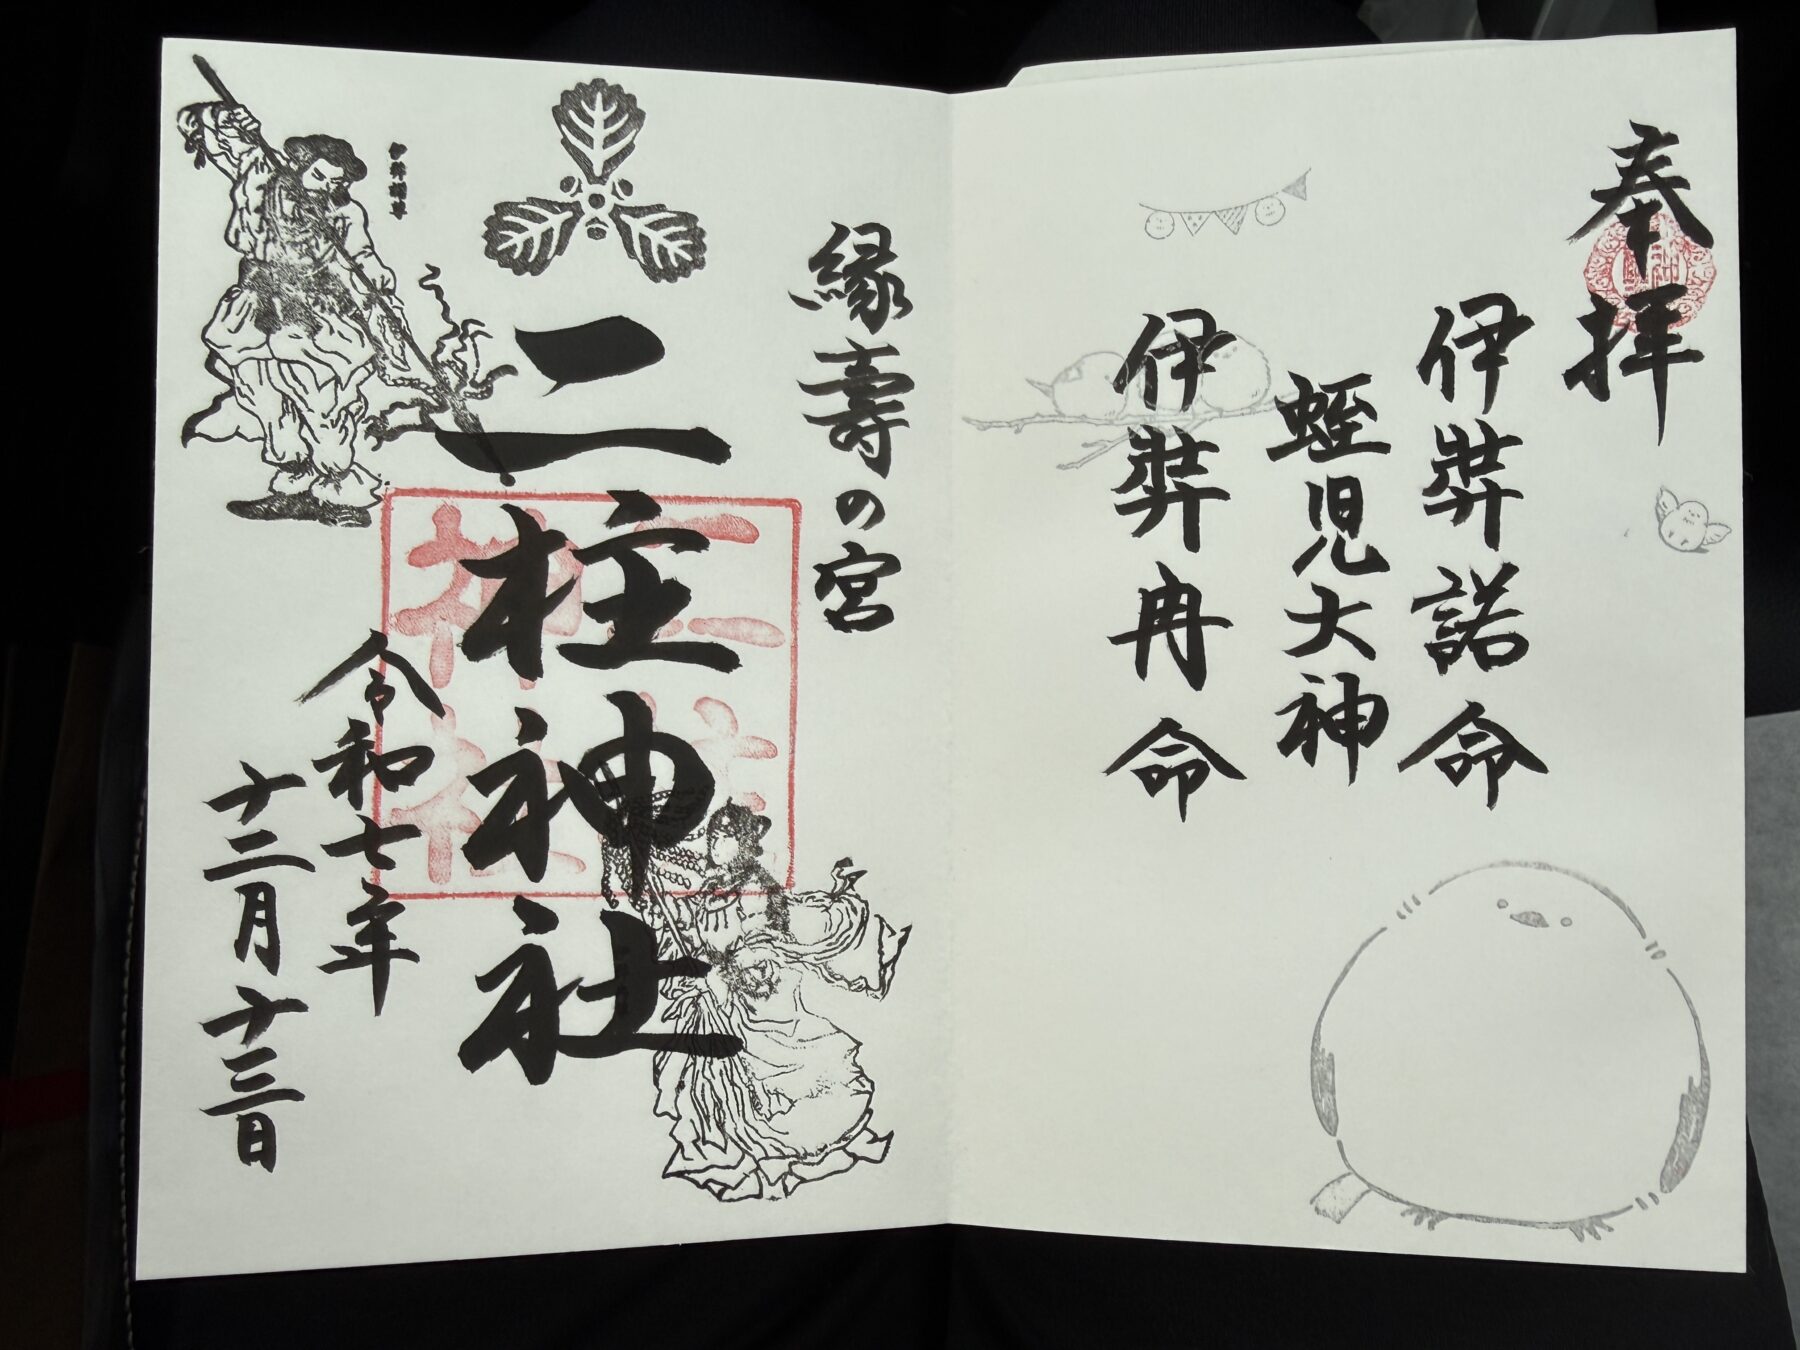 奉拝
伊弉諾命
蛭児大神
伊弉冉命
縁壽の宮
二柱神社
令和七年
十二月十三日
伊弉諾尊
二柱
神社